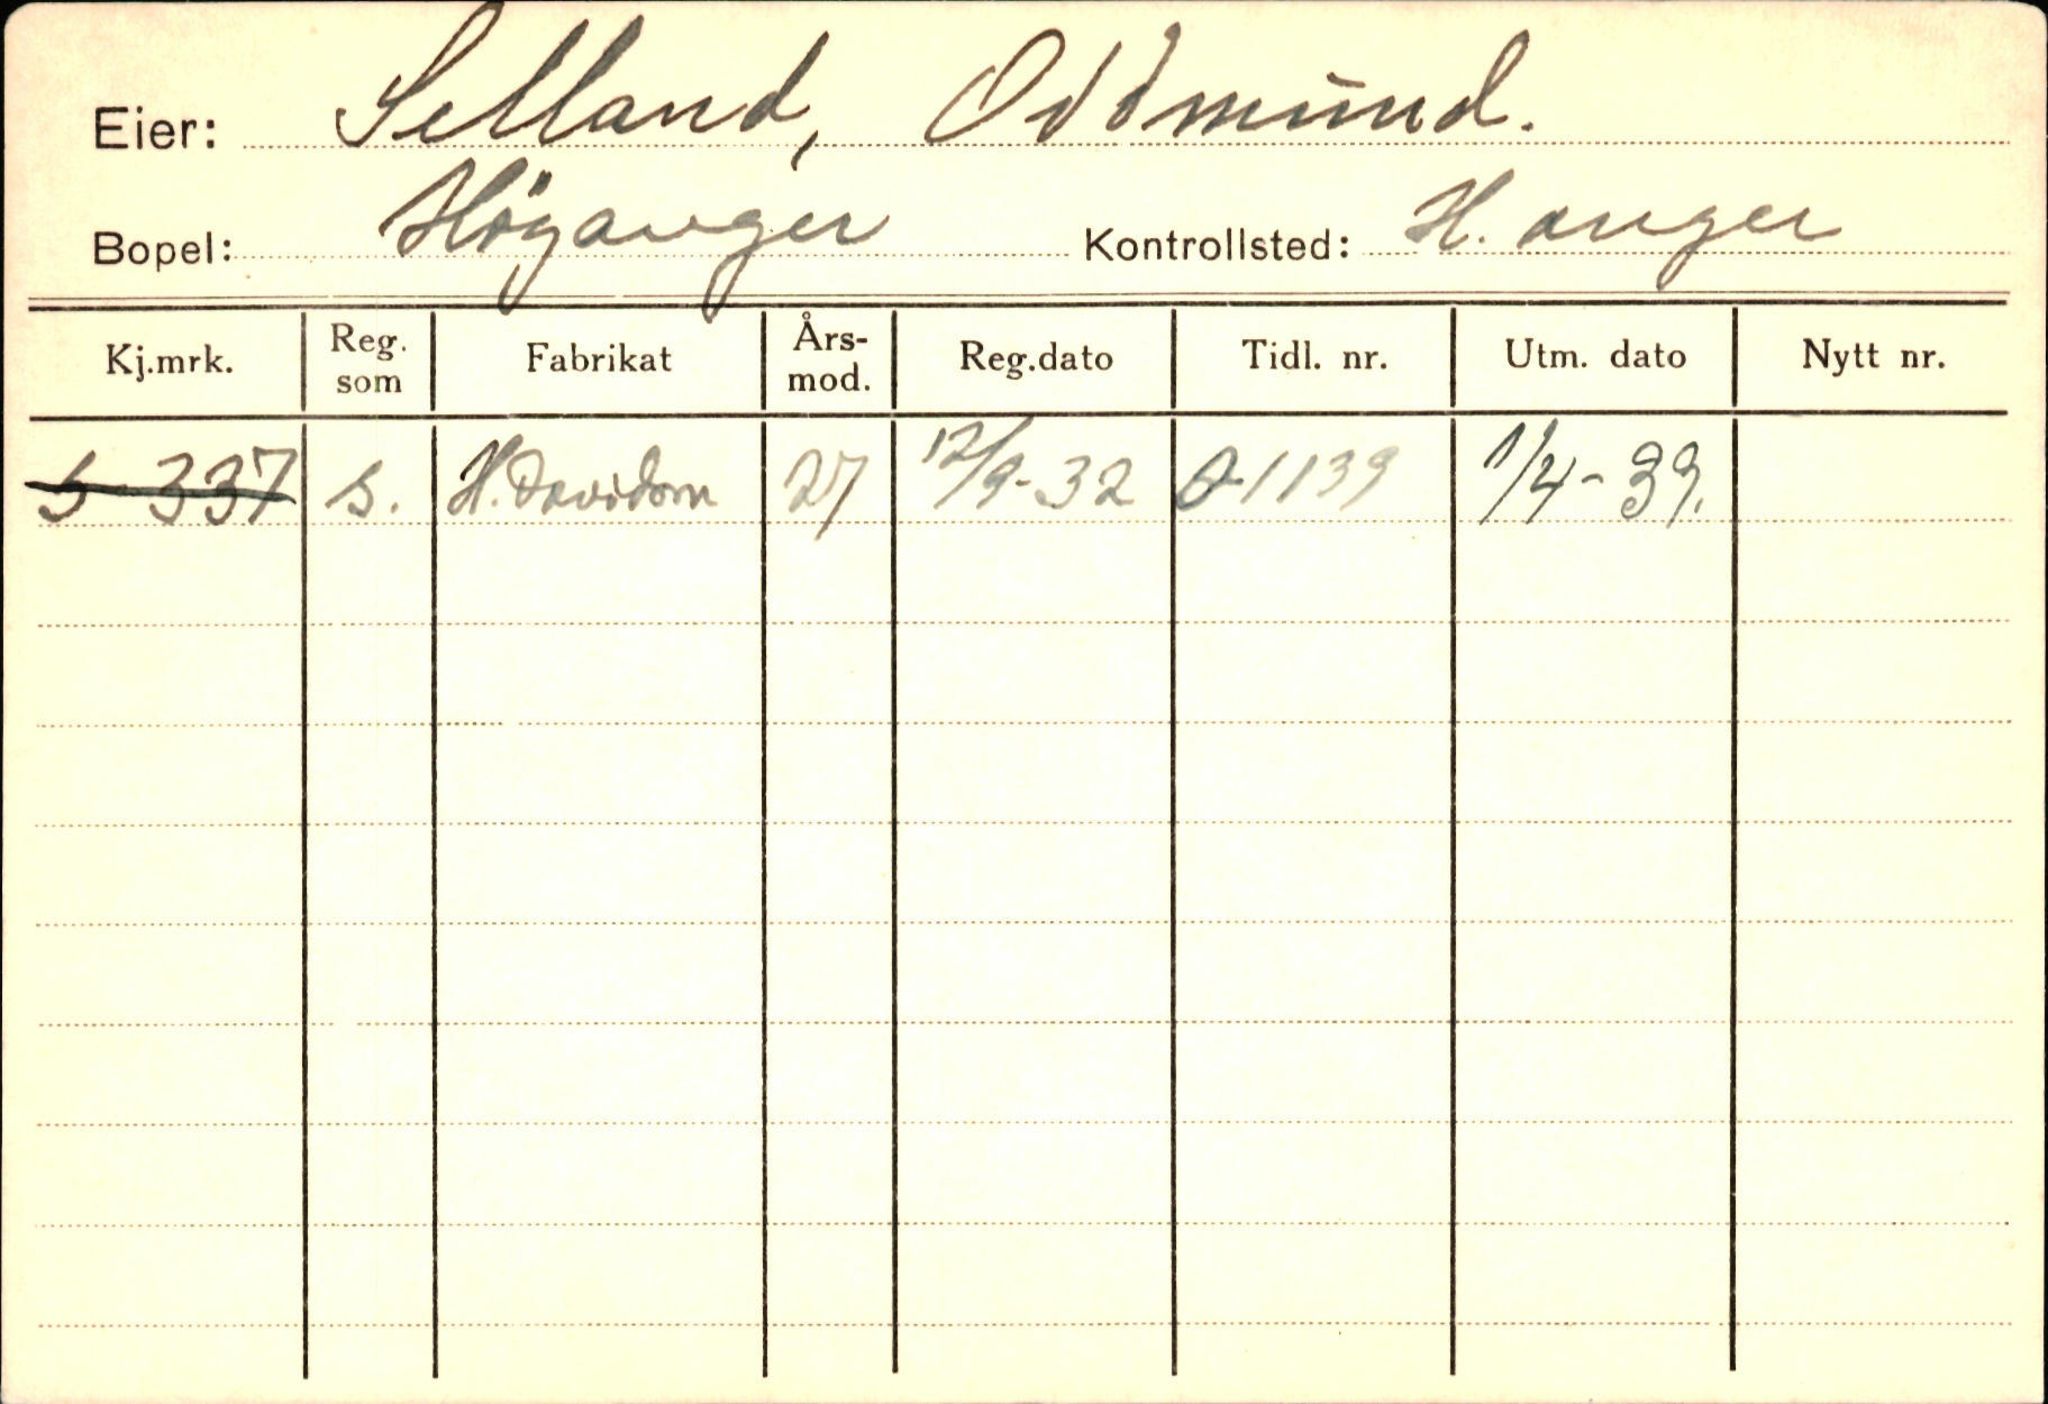 Eier: Selland, Oddmund.
Bopel: Höyanger Kontrollsted: H. anger
Kj.mrk. Reg. som Fabrikat Års-mod. Reg.dato Tidl. nr. Utm. dato Nytt nr.
S-337 s. H. Davidson 27 12/9-32 O-1139 1/4-39.